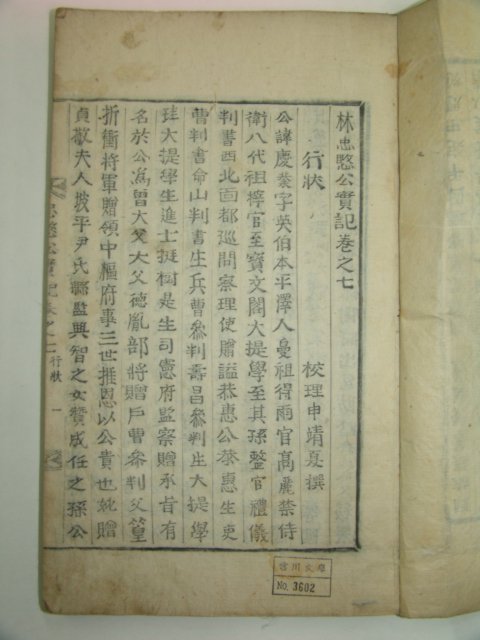 林忠愍公實記卷之七
行狀 校理申靖夏撰
公諱慶業字英伯本平澤人曼祖得雨官高麗禁侍
衛八代祖㺸官至寶文閣大提學至其孫整官禮儀
判書西北面都巡問察理使贈謚恭惠公恭惠生吏
曹判書命山判書生兵曹叅判壽昌叅判生大提學
珪大提學生進士挺樹是生司憲府監察贈承旨有
名於公爲曾大父大父德胤部將贈戶曹叅判父篁
折衝將軍贈領中樞府事三世推恩以公貴也妣贈
貞敬夫人坡平尹氏縣監興智之女贊成任之孫公
忠愍公實記卷之七 行狀 一
No. 3602